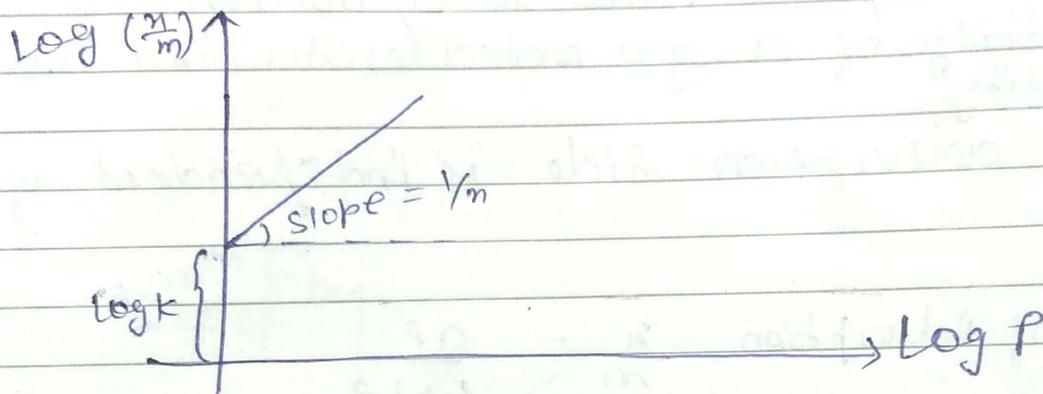 Log (x/m)
slope = 1/n
Log k
Log P